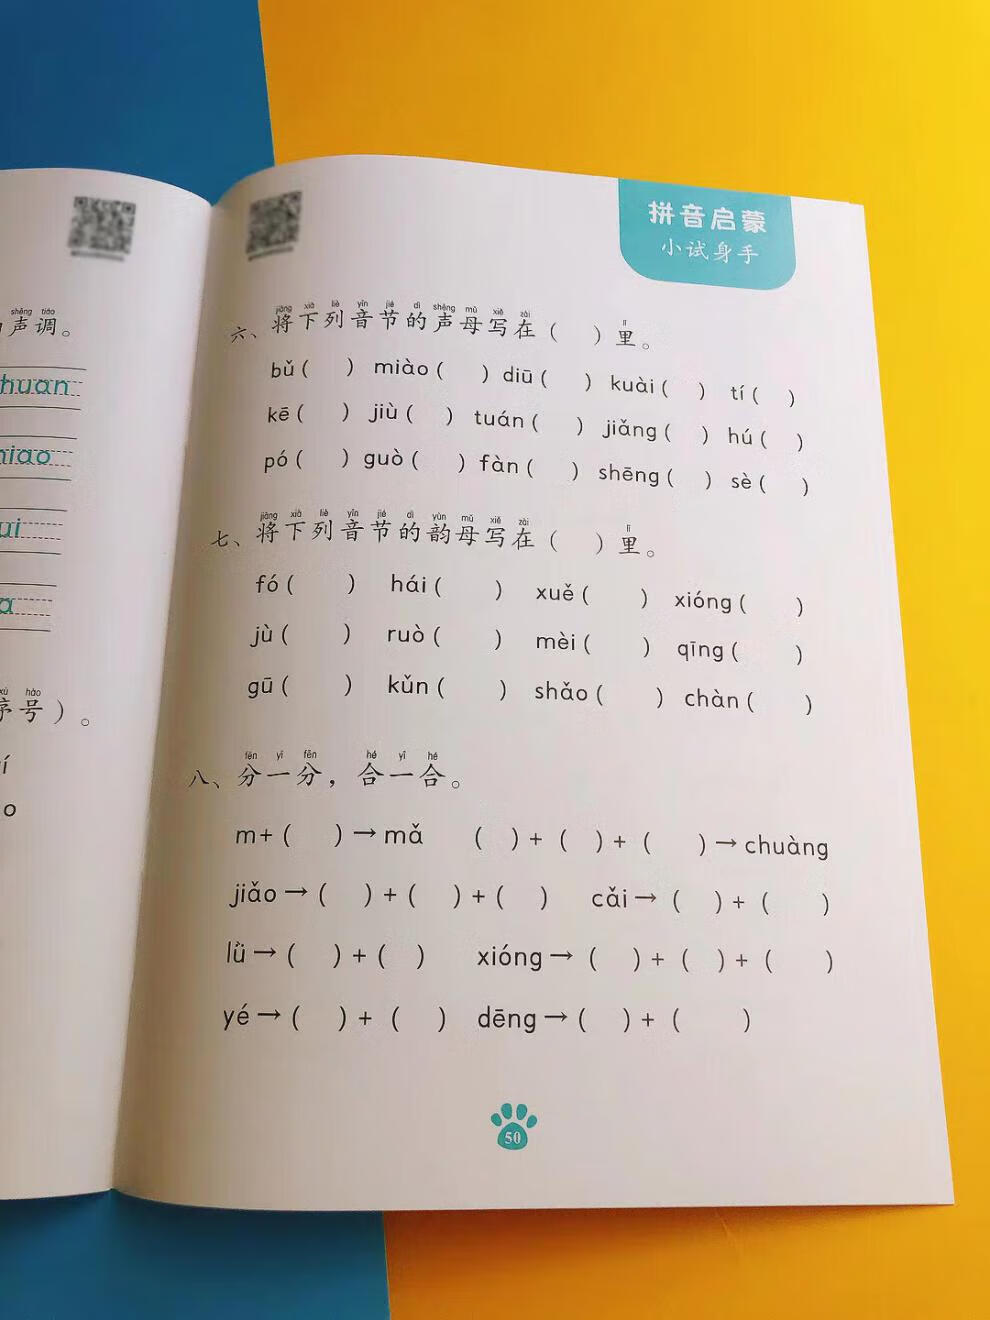 shēng tiáo
声调。
huan
iao
ui
a
xù hào
序号）。
í
o
拼音启蒙
小试身手
jiāng xià liè yīn jié dì shēng mǔ xiě zài lǐ
六、将下列音节的声母写在（ ）里。
bǔ ( ) miào ( ) diū ( ) kuài ( ) tí ( )
kē ( ) jiù ( ) tuán ( ) jiǎng ( ) hú ( )
pó ( ) guò ( ) fàn ( ) shēng ( ) sè ( )
jiāng xià liè yīn jié dì yùn mǔ xiě zài lǐ
七、将下列音节的韵母写在（ ）里。
fó ( ) hái ( ) xuě ( ) xióng ( )
jù ( ) ruò ( ) mèi ( ) qīng ( )
gū ( ) kǔn ( ) shǎo ( ) chàn ( )
fēn yī fēn hé yī hé
八、分一分，合一合。
m+ ( ) → mǎ ( ) + ( ) + ( ) → chuàng
jiǎo → ( ) + ( ) + ( ) cǎi → ( ) + ( )
lǜ → ( ) + ( ) xióng → ( ) + ( ) + ( )
yé → ( ) + ( ) dēng → ( ) + ( )
50